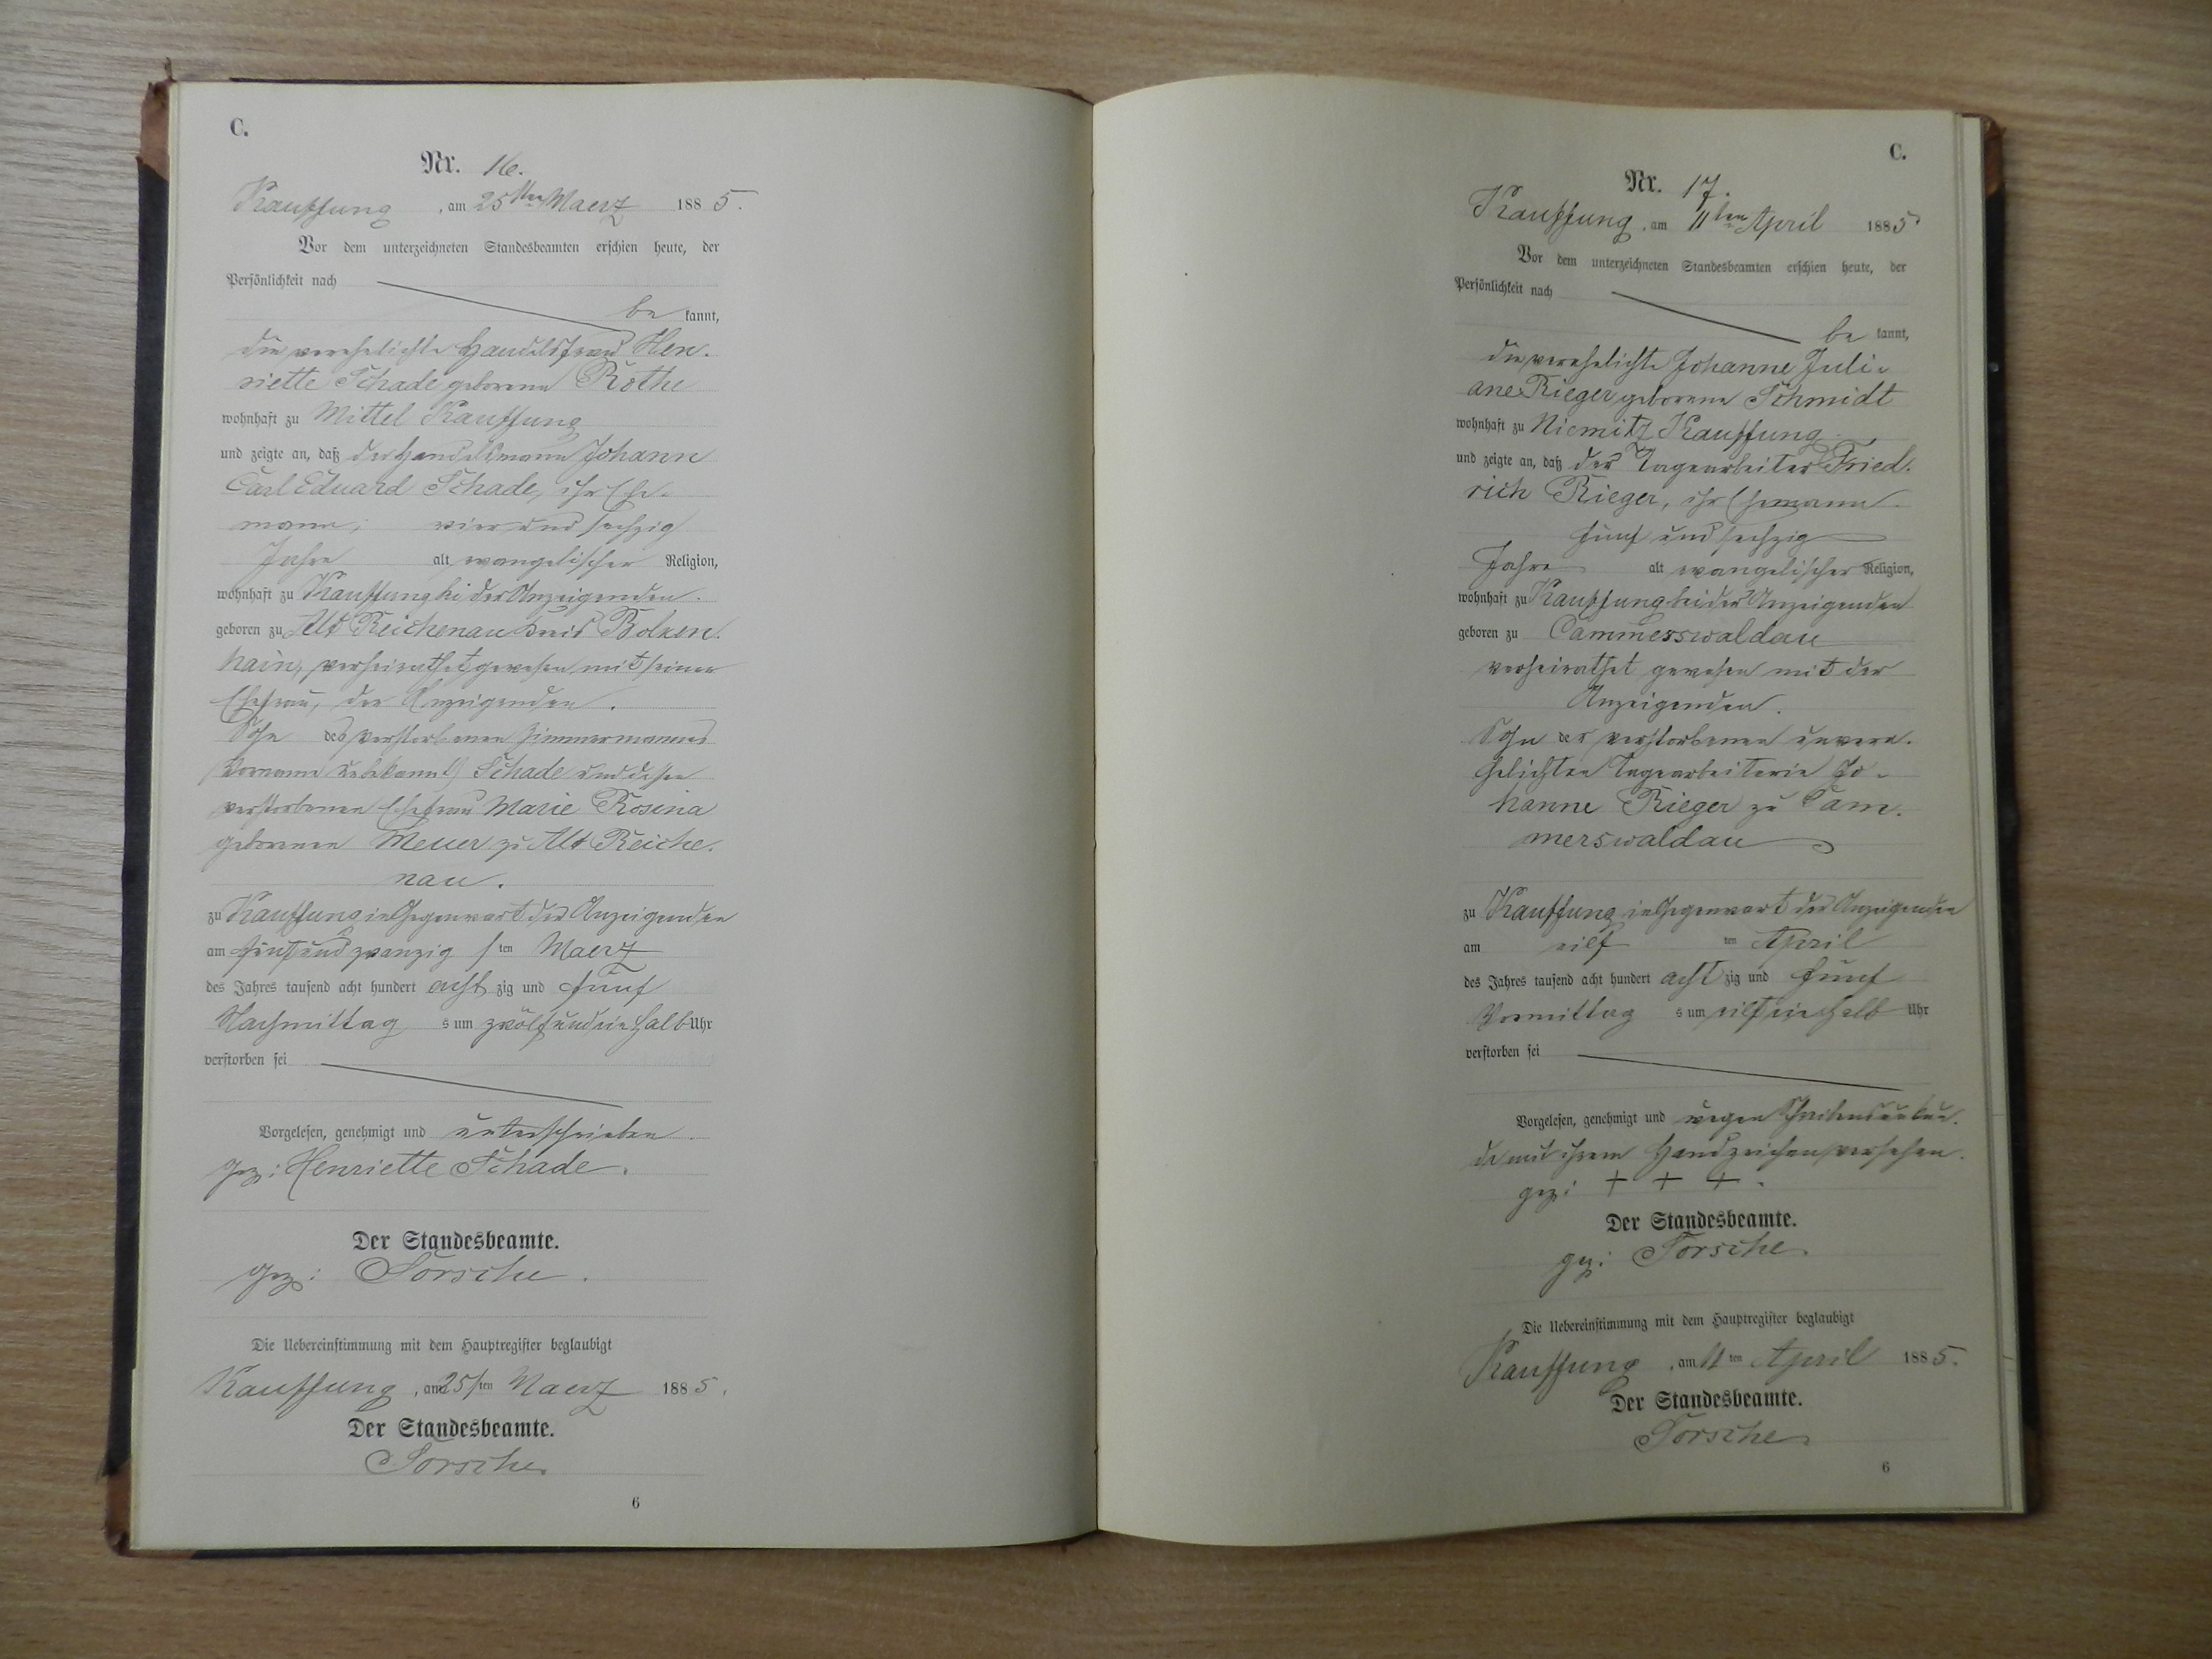 C.
Nr. 16.
Kauffung, am 25sten Maerz 1885.
Vor dem unterzeichneten Standesbeamten erschien heute, der
Persönlichkeit nach
be kannt,
die verehelichte Handelsfrau Hen-
riette Schade geborene Rothe
wohnhaft zu Mittel Kauffung
und zeigte an, daß der Handelsmann Johann
Carl Eduard Schade, ihr Ehe-
mann, vier und sechzig
Jahre alt evangelischer Religion,
wohnhaft zu Kauffung bei der Anzeigenden.
geboren zu Alt Reichenau Kreis Bolken-
hain, verheirathet gewesen mit seiner
Ehefrau, der Anzeigenden.
Sohn des verstorbenen Zimmermanns
(Vorname unbekannt) Schade und dessen
verstorbenen Ehefrau Marie Rosina
geborenen zu Alt Reiche-
nau.
zu Kauffung in Gegenwart der Anzeigenden
am fünfundzwanzig sten Maerz
des Jahres tausend acht hundert acht zig und fünf
Nachmittag s um zwölfundeinhalb Uhr
verstorben sei
Vorgelesen, genehmigt und unterschrieben
gez: Henriette Schade.
Der Standesbeamte.
gez: Torsche.
Die Uebereinstimmung mit dem Hauptregister beglaubigt
Kauffung, am 25sten Maerz 1885.
Der Standesbeamte.
Torsche.
6
C.
Nr. 17.
Kauffung, am 11ten April 1885
Vor dem unterzeichneten Standesbeamten erschien heute, der
Persönlichkeit nach
be kannt,
die verehelichte Johanne Juli-
ane Rieger geborene Schmidt
wohnhaft zu Niemitz Kauffung
und zeigte an, daß der Tagearbeiter Fried-
rich Rieger, ihr Ehemann
fünf und sechzig
Jahre alt evangelischer Religion,
wohnhaft zu Kauffung bei der Anzeigenden
geboren zu Cammerswaldau
verheirathet gewesen mit der
Anzeigenden.
Sohn der verstorbenen unvere-
helichten Tagearbeiterin Jo-
hanne Rieger zu Cam-
merswaldau
zu Kauffung in Gegenwart der Anzeigenden
am eilf ten April
des Jahres tausend acht hundert acht zig und fünf
Vormittag s um eilfeinhalb Uhr
verstorben sei
Vorgelesen, genehmigt und wegen Schreibensunkun-
de mit ihrem Handzeichen versehen.
gez: + + +.
Der Standesbeamte.
gez: Torsche.
Die Uebereinstimmung mit dem Hauptregister beglaubigt
Kauffung, am 11ten April 1885.
Der Standesbeamte.
Torsche.
6